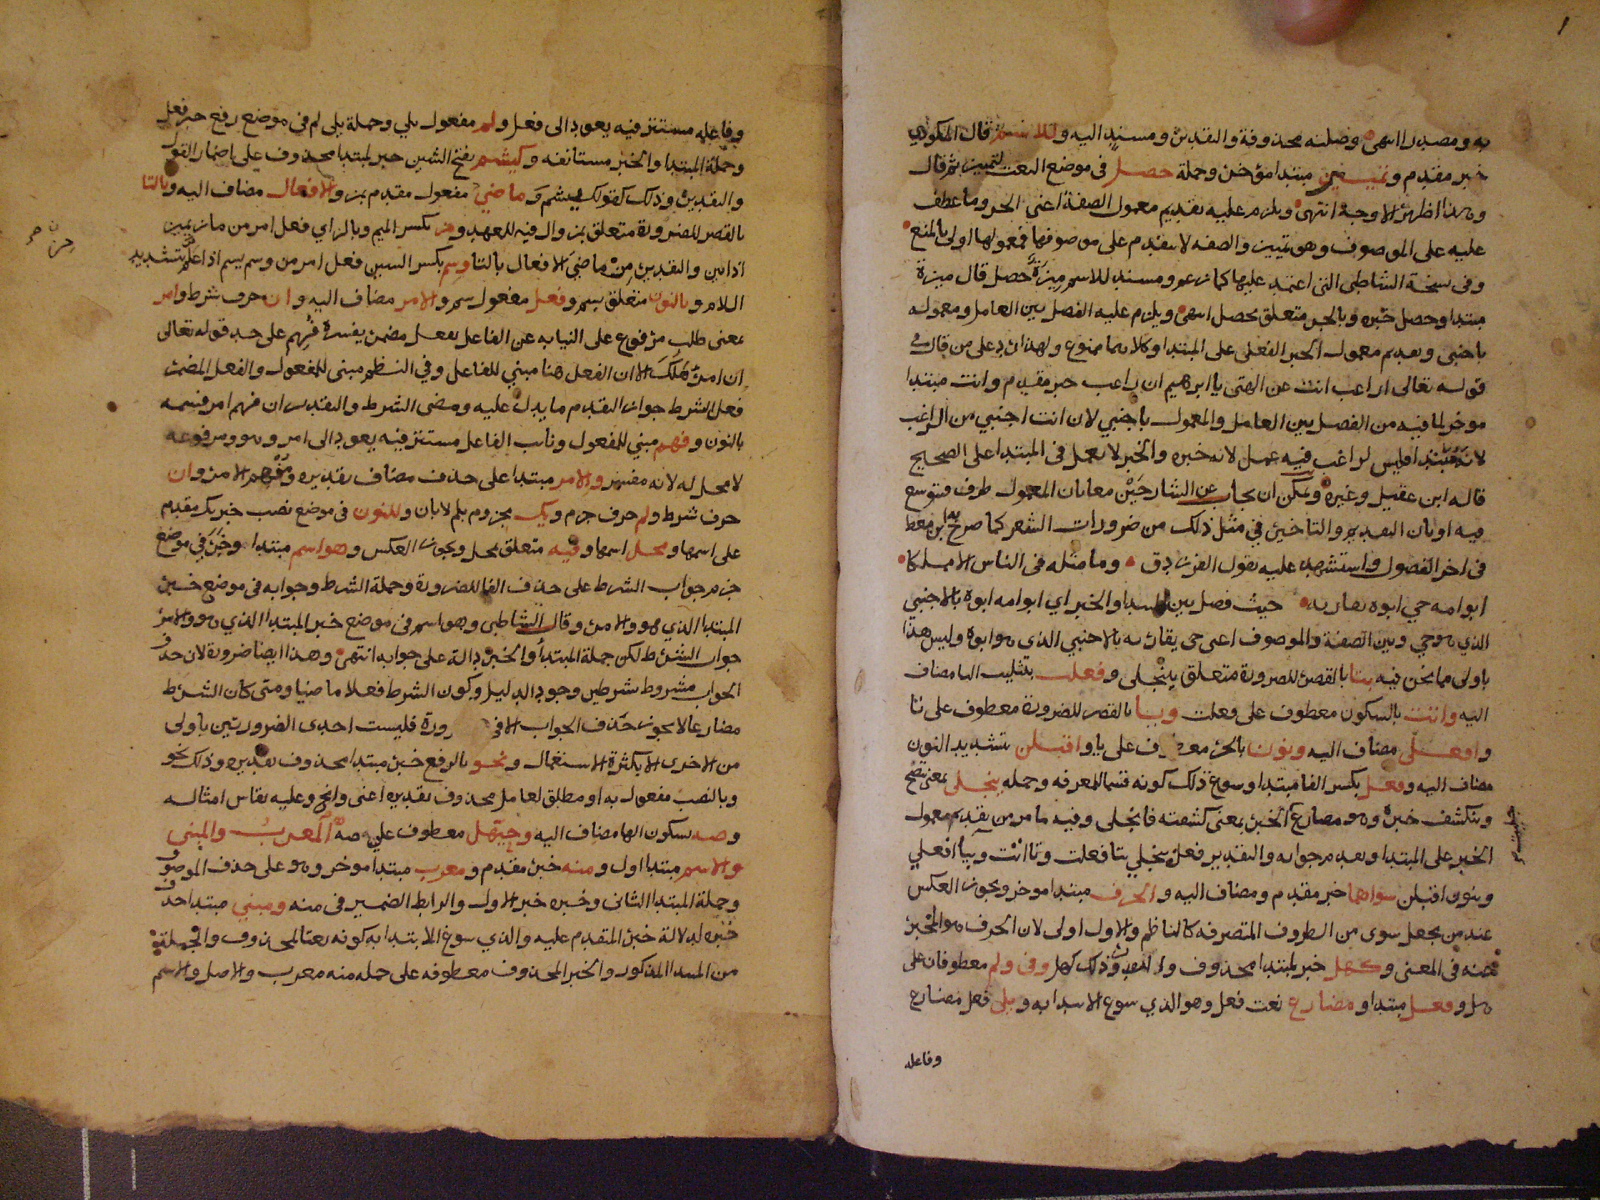 به ومصدرا انتهى وصلته محذوفة والتقدير ومسند اليه وللاسم قال المكودي
خبر مقدم وتمييز مبتدا مؤخر وجملة حصل في موضع النعت لتمييز ثم قال
وهذا اظهر الاوجه انتهى ويلزم عليه تقديم معمول الصفة اعنى الجر وما عطف
عليه على الموصوف وهو تمييز والصفه لا تتقدم على موصوفها فمعمولها اولى بالمنع
وفي نسخة الشاطبي التى اعتمد عليها كما زعم ومسند للاسم ميزة حصل قال ميزة
مبتدا وحصل خبره وبالجر متعلق بحصل انتهى ويلزم عليه الفصل بين العامل ومعموله
باجنبي وتقديم معمول الخبر الفعلى على المبتدا وكلاهما ممنوع ولهذا رد على من قال في
قوله تعالى اراغب انت عن الهتى يا ابراهيم ان راغب خبر مقدم وانت مبتدا
موخر لما فيه من الفصل بين العامل والمعمول باجنبي لان انت اجنبي من الراغب
لانه مبتدا فليس لراغب فيه عمل لانه خبره والخبر لا يعمل في المبتدا على الصحيح
قاله ابن عقيل وغيره ويمكن ان يجاب عن الشارحين معا بان المعمول ظرف فتوسع
فيه او بان التقديم والتاخير في مثل ذلك من ضرورات الشعر كما صرح به ابن معط
في اخر الفصول واستشهد عليه بقول الفرزدق وما مثله في الناس الا مملكا
ابو امه حي ابوه يقاربه حيث فصل بين المبتدا والخبر اي ابو امه ابوه بالاجنبي
الذي هو حي وبين الصفة والموصوف اعنى حي يقاربه بالاجنبي الذي هو ابوه وليس هذا
باولى مما نحن فيه بتا بالقصر للضرورة متعلق بينجلى وفعلت بتثليث التا مضاف
اليه واتت بالسكون معطوف على فعلت ويا بالقصر للضرورة معطوف على تا
وافعلى مضاف اليه ونون بالجر معطوف على يا واقبلن بتشديد النون
مضاف اليه وفعل بكسر الفا مبتدا وسوغ ذلك كونه قسيما للمعرفه وجمله ينجلى بمعنى يتضح
وينكشف خبره وهو مضارع انجلى بمعنى كشفته فانجلى وفيه ما مر من تقديم معمول
الخبر على المبتدا وتقدم جوابه والتقدير فعل ينجلي بتا فعلت وتا اتت وبيا افعلي
ونون اقبلن سواهما خبر مقدم ومضاف اليه والحرف مبتدا موخر ويجوز العكس
عند من يجعل سوى من الظروف المتصرفه كالناظم والاول اولى لان الحرف هو المخبر
عنه في المعنى وكهل خبر لمبتدا محذوف والتقدير وذلك كهل وفي ولم معطوفان على
هل وفعل مبتدا ومضارع نعت فعل وهو الذي سوغ الابتدا به ويلى فعل مضارع
وفاعله
وفاعله مستتر فيه يعود الى فعل ولم مفعول يلي وجملة يلى لم في موضع رفع خبر فعل
وجملة المبتدا والخبر مستانفه وكيشم بفتح الشين خبر لمبتدا محذوف على اضمار القول
والتقدير وذلك كقولك يشم وماضي مفعول مقدم بمز والافعال مضاف اليه وبالتا
بالقصر للضرورة متعلق بمز وال فيه للعهد ومز بكسر الميم وبالزاي فعل امر من ماز يميز
اذا بين والتقدير مز ماضي الافعال بالتا وسم بكسر السين فعل امر من وسم يسم اذا علم بتشديد
اللام وبالنون متعلق بسم وفعل مفعول سم والامر مضاف اليه وان حرف شرط وامر
بمعنى طلب مرفوع على النيابه عن الفاعل بفعل مضمر يفسره فهم على حد قوله تعالى
ان امرؤ هلك الا ان الفعل هنا مبني للفاعل وفي النظم مبنى للمفعول والفعل المضمر
فعل الشرط جوابه التقدم ما يدل عليه ومضى الشرط والتقدير ان فهم امر فسمه
بالنون وفهم مبني للمفعول ونائب الفاعل مستتر فيه يعود الى امر وهو ومرفوعه
لا محل له لانه مفسر والامر مبتدا على حذف مضاف تقديره ومفهم الامر وان
حرف شرط ولم حرف جزم ويك مجزوم بلم لا بان وللنون في موضع نصب خبر يك مقدم
على اسمها ومحل اسمها وفيه متعلق بمحل ويجوز العكس وهو اسم مبتدا وخبر في موضع
جزم جواب الشرط على حذف الفا للضرورة وجملة الشرط وجوابه في موضع خبر
المبتدا الذي هو والامر وقال الشاطبي وهو اسم في موضع خبر المبتدا الذي هو والامر
جواب الشرط لكن جملة المبتدأ والخبر دالة على جوابه انتهى وهذا ايضا ضرورة لان حذف
الجواب مشروط بشرطين وجود الدليل وكون الشرط فعلا ماضيا ومتى كان الشرط
مضارعا لا يجوز حذف الجواب الا في ورة فليست احدى الضرورتين باولى
من الاخرى الا بكثرة الاستعمال ونحو بالرفع خبر مبتدا محذوف تقديره وذلك نحو
وبالنصب مفعول به او مطلق لعامل محذوف تقديره اعنى وانحو وعليه نقاس امثاله
وصه بسكون الها مضاف اليه وحيهل معطوف على صه المعرب والمبني
والاسم مبتدا اول ومنه خبر مقدم ومعرب مبتدا موخر وهو على حذف الموصوف
وجملة المبتدا الثاني وخبره خبر الاول والرابط الضمير في منه ومبني مبتدا حذف
خبره لدلالة خبر المتقدم عليه والذي سوغ الابتدا به كونه نعتا لمحذوف والجملة
من المبتدا المذكور والخبر المحذوف معطوفه على جمله منه معرب والاصل والاسم